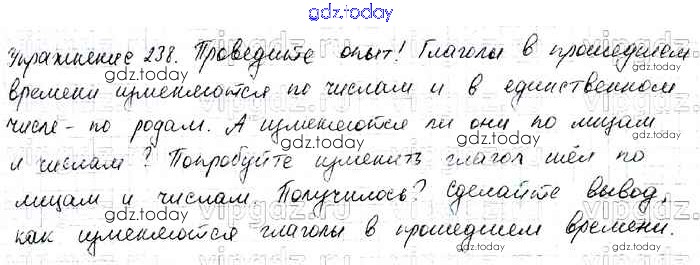 gdz.today
Упражнение 238. Проведите опыт! Глаголы в прошедшем
времени изменяются по числам и в единственном
числе - по родам. А изменяются ли они по лицам
и числам? Попробуйте изменить глагол шёл по
лицам и числам. Получилось? Сделайте вывод,
как изменяются глаголы в прошедшем времени.